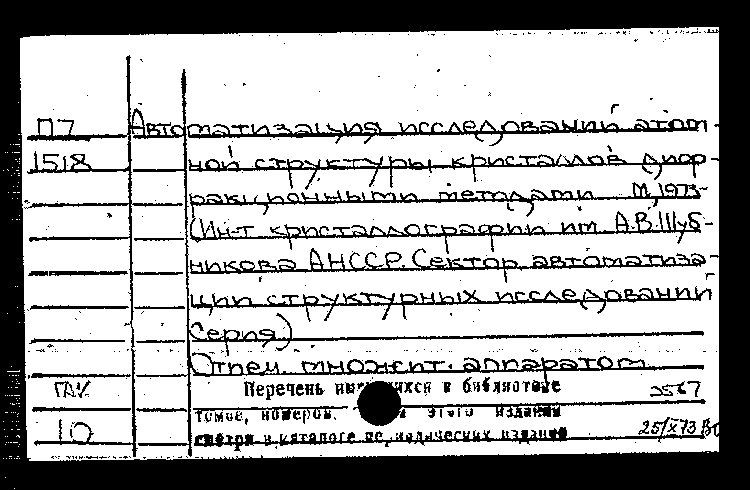 П7 Автоматизация исследований атом-
1518 ной структуры кристаллов диф-
ракционными методами М, 1973-
(Ин-т кристаллографии им. А.В.Шуб-
никова АНССР. Сектор автоматиза-
ции структурных исследований
Серия)
Отпеч. множит. аппаратом
ГАУ Перечень имеющихся в библиотеке 2567
томов, номеров. этого издания
10 смотри в каталоге периодических изданий 25/X 73